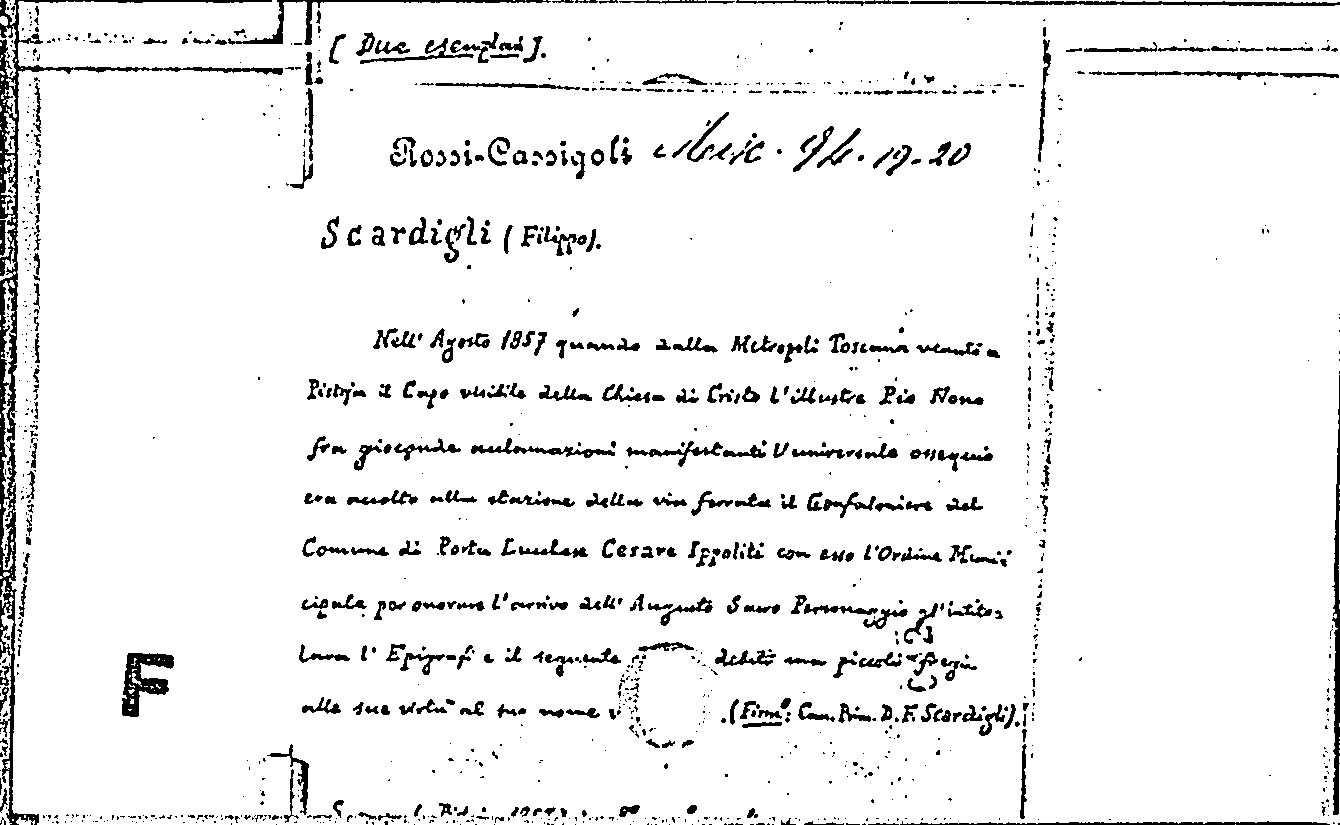 [Due esemplari].
Rossi-Cassigoli Misc. 19-20
Scardigli (Filippo).
Nell' Agosto 1857 quando dalla Metropoli Toscana venuto a
Pistoja il Capo visibile della Chiesa di Cristo l'illustre Pio Nono
fra gioconde acclamazioni manifestanti l'universale ossequio
era accolto alla stazione della via ferrata il Gonfaloniere del
Comune di Porta Lucchese Cesare Ippoliti con esso l'Ordine Muni
cipale per onorare l'arrivo dell' Augusto Sacro Personaggio gl'intito
lava l' Epigrafi e il seguente debito ma piccoli fregi
alle sue virtù al suo nome v .(Firmo: Can. Prim. D. F. Scardigli).
F